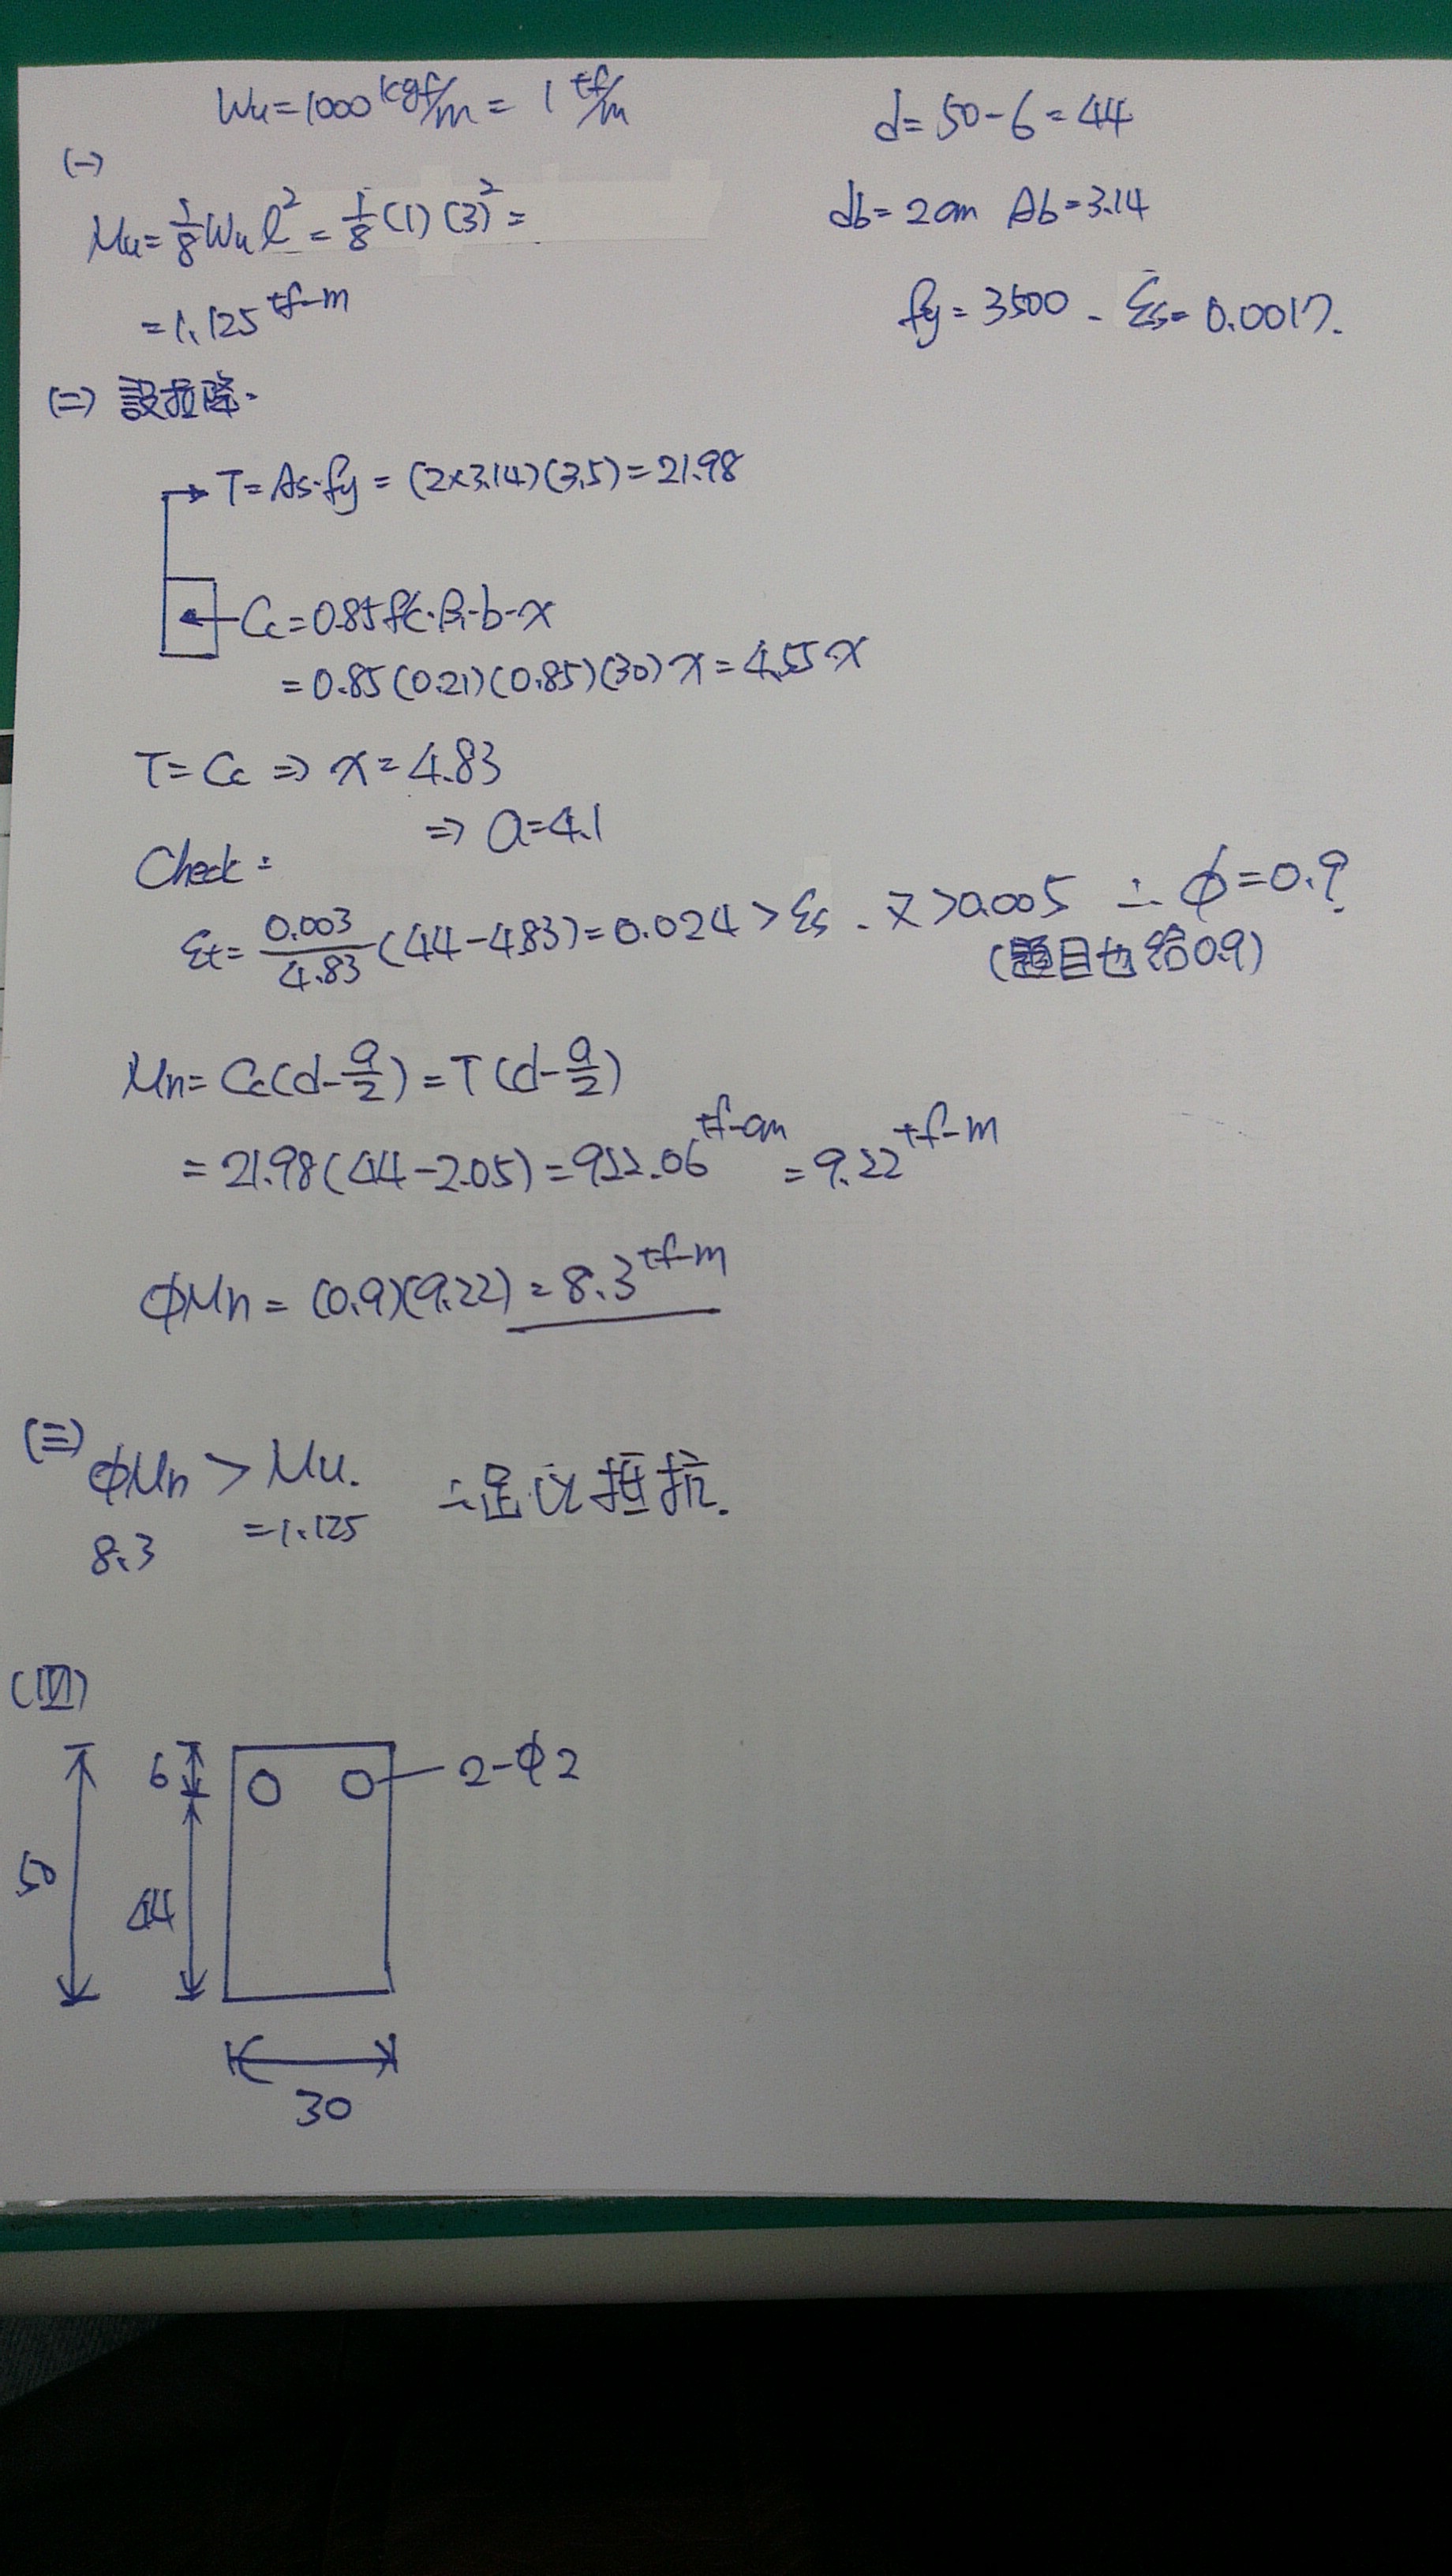 Wu=1000 kgf/m = 1 tf/m
d=50-6=44
(一)
Mu=1/8 Wu l² = 1/8 (1) (3)² =
db=2cm Ab=3.14
=1.125 tf-m
fy=3500 - εs=0.0017.
(二) 設拉降.
T=As·fy = (2×3.14)(3.5)=21.98
Cc=0.85fc'·β1·b·x
=0.85(0.21)(0.85)(30)x=4.55x
T=Cc ⇒ x=4.83
⇒ a=4.1
Check:
εt= 0.003/4.83 (44-4.83)=0.024>εs . 又>0.005 ∴ φ=0.9
(題目也給0.9)
Mn=Cc(d-a/2)=T(d-a/2)
=21.98(44-2.05)=922.06 tf-cm =9.22 tf-m
φMn=(0.9)(9.22)=8.3 tf-m
(三)
φMn > Mu. ∴足以抵抗.
8.3 =1.125
(四)
6 2-φ2
50
44
30